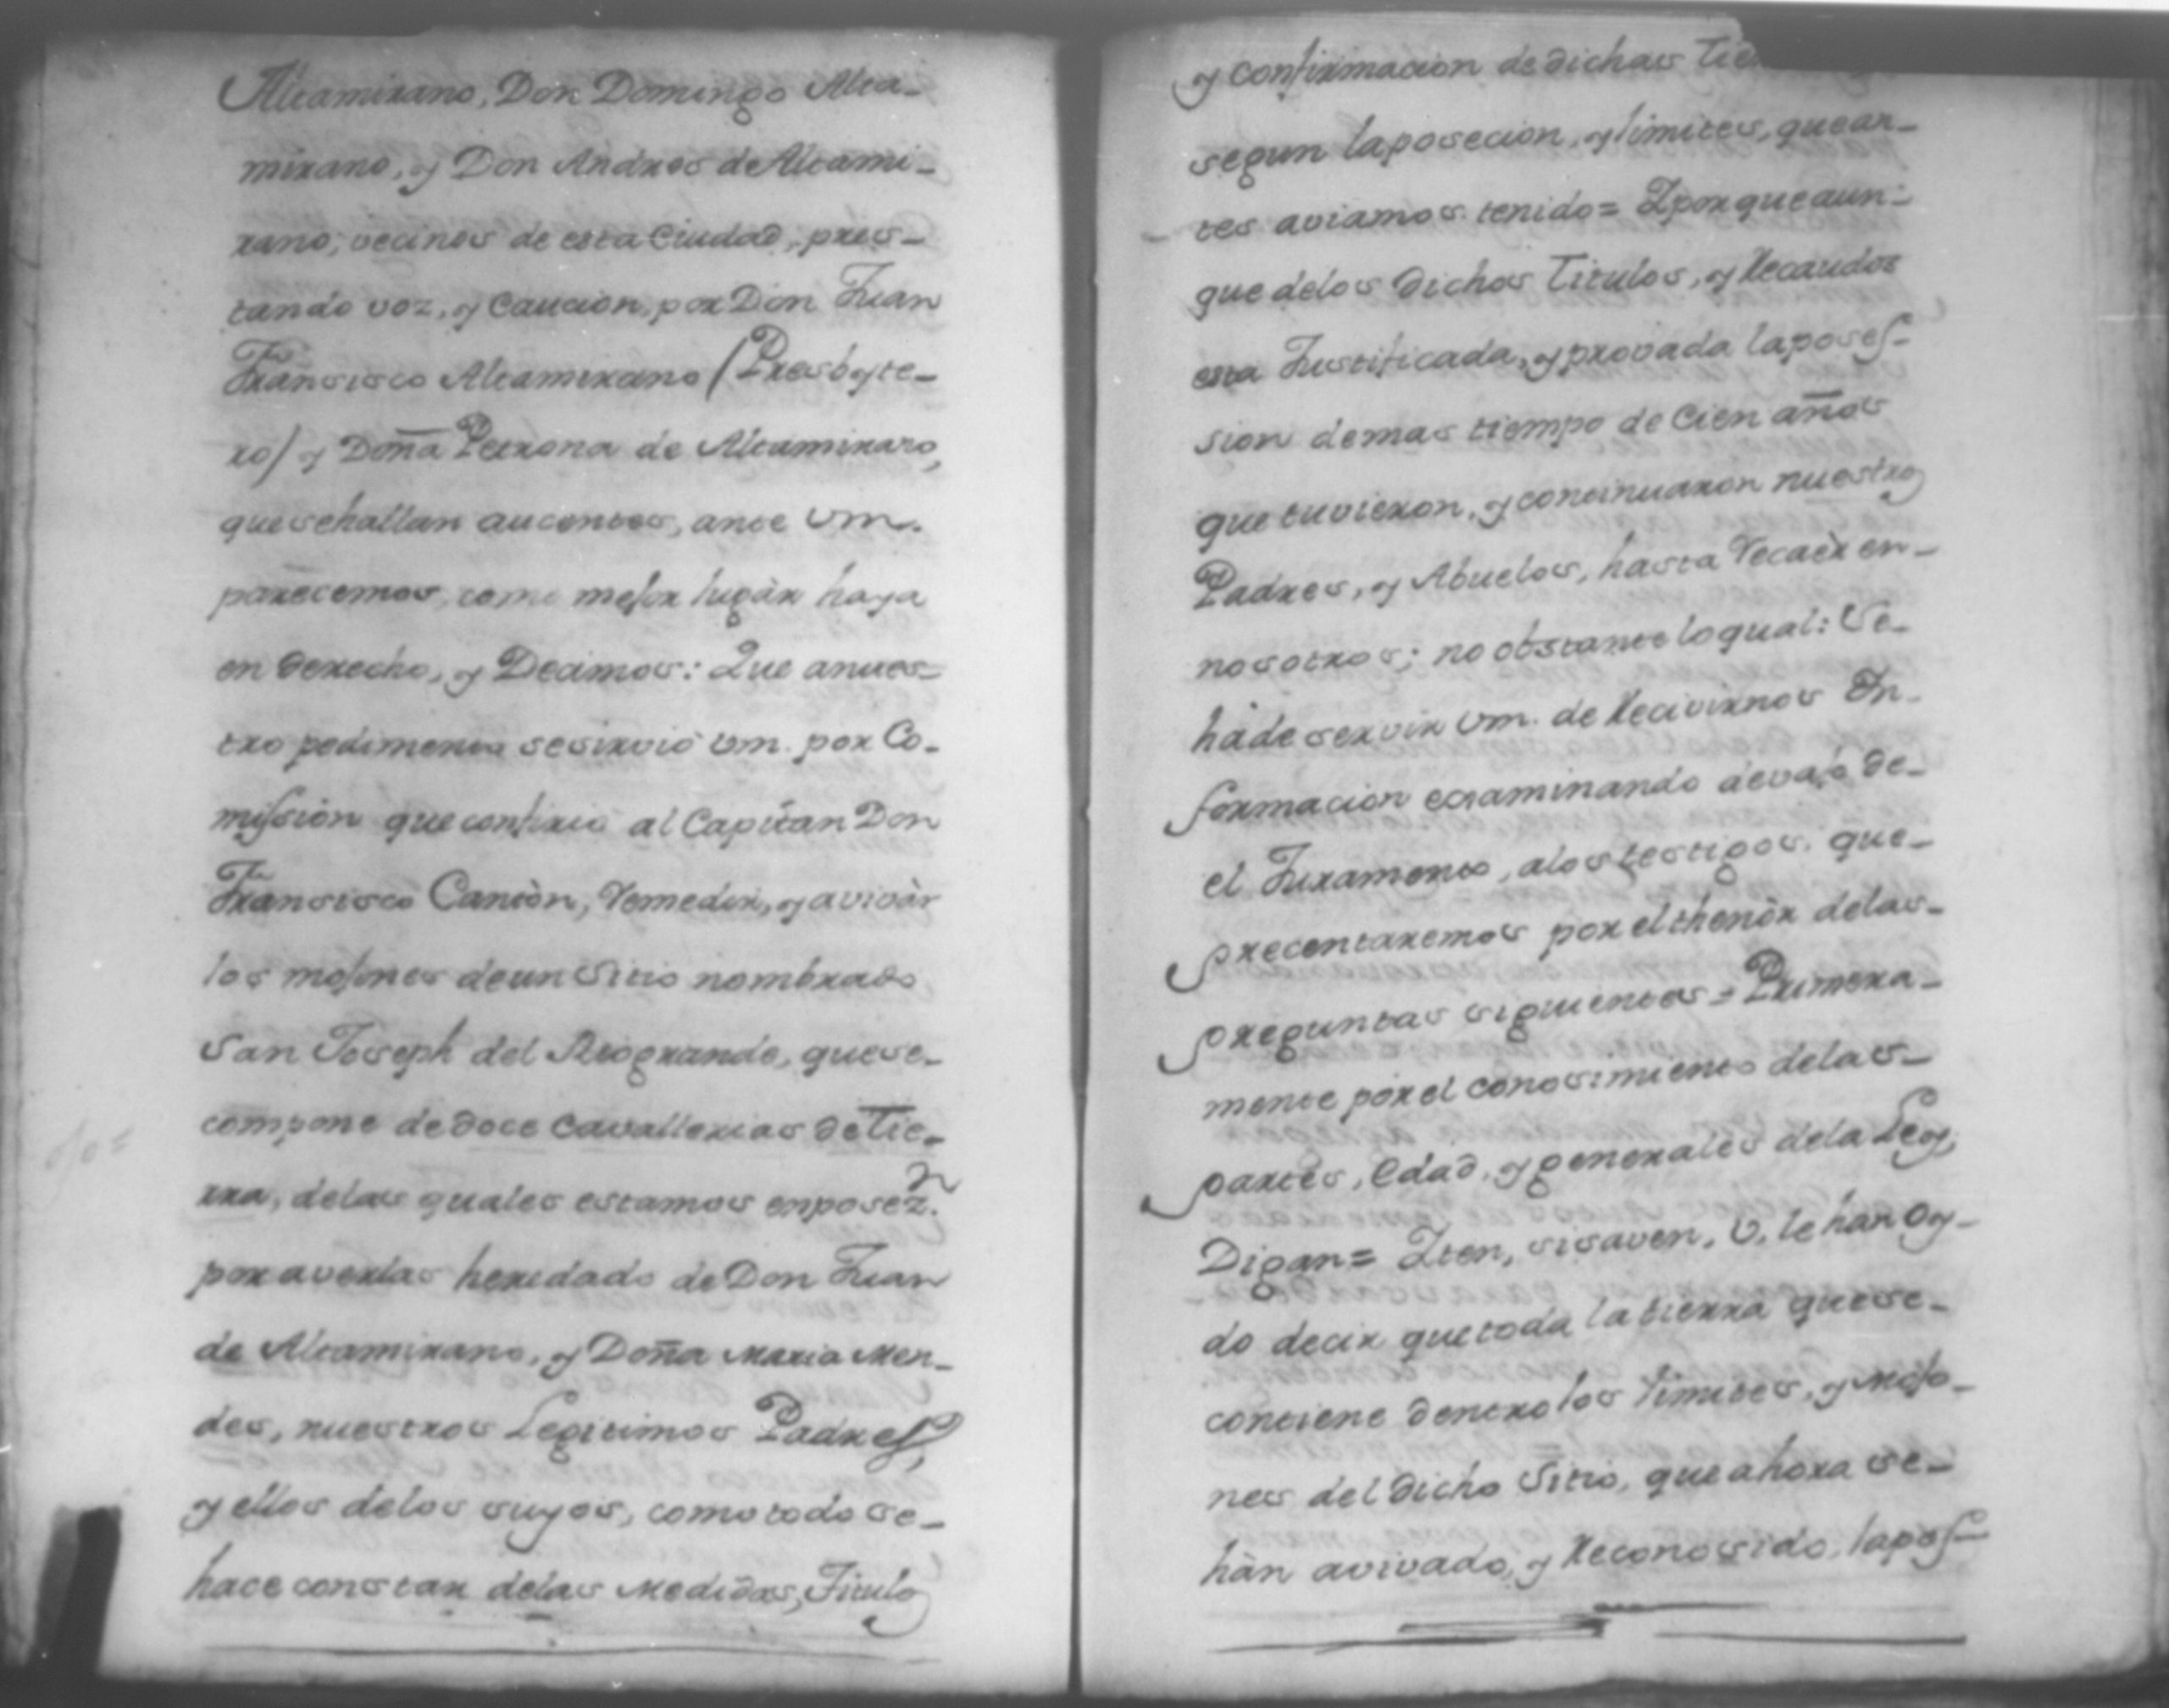 Altamirano, Don Domingo Alta-
mirano, y Don Andres de Altami-
rano, vecinos de esta Ciudad, pres-
tando voz, y Caucion, por Don Juan
Fransisco Altamirano (Presbyte-
ro) y Doña Petrona de Altamirano,
que se hallan aucentes, ante Vm.
parecemos, como mejor lugàr haya
en derecho, y Decimos: Que anues-
tro pedimento se sirviò Vm. por Co-
mission que confirio al Capitan Don
Fransisco Cantòn, Remedir, y avivàr
los mojones de un Sitio nombrado
San Joseph del Riogrande, que se-
compone de doce Cavallerias de Tie-
rra, delas quales estamos en posez.n
por averlas heredado de Don Juan
de Altamirano, y Doña Maria Men-
des, nuestros Legitimos Padres,
y ellos delos suyos, como todo se-
hace constar delas Medidas, Titulo
y confirmacion de dichas
segun la posecion, y limites, que an-
tes aviamos tenido= Y porque aun-
que delos dichos Titulos, y Recaudos
esta Justificada, y provada la poses-
sion de mas tiempo de Cien años
que tuvieron, y continuaron nuestros
Padres, y Abuelos, hasta Recaèr en-
nosotros; no obstante lo qual: Se-
hà de servir Vm. de Recivirnos In-
formacion ecsaminando devajo de-
el Juramento, alos testigos, que-
precentaremos por el thenòr delas-
preguntas siguientes= Primera-
mente por el conosimiento delas-
partes, Edad, y generales dela Ley,
Digan= Yten, si saven, ò, le han Oy-
do decir que toda la tierra que se-
contiene dentro los limites, y Mojo-
nes del dicho Sitio, que ahora se-
hàn avivado, y Reconosido, la pos-